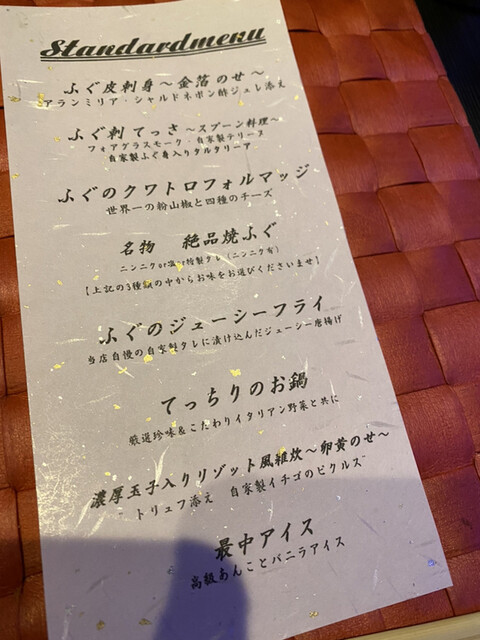 Standardmenu
ふぐ皮刺身～金箔のせ～
アランミリア・シャルドネポン酢ジュレ添え
ふぐ刺 てっさ ～スプーン料理～
フォアグラスモーク・自家製テリーヌ
自家製ふぐ身入りタルタリーア
ふぐのクワトロフォルマッジ
世界一の粉山椒と四種のチーズ
名物 絶品焼ふぐ
ニンニクor塩or特製タレ(ニンニク有)
【上記の3種類の中からお味をお選びくださいませ】
ふぐのジューシーフライ
当店自慢の自家製タレに漬け込んだジューシー唐揚げ
てっちりのお鍋
厳選珍味&こだわりイタリアン野菜と共に
濃厚玉子入りリゾット風雑炊～卵黄のせ～
トリュフ添え 自家製イチゴのピクルス
最中アイス
高級あんことバニラアイス